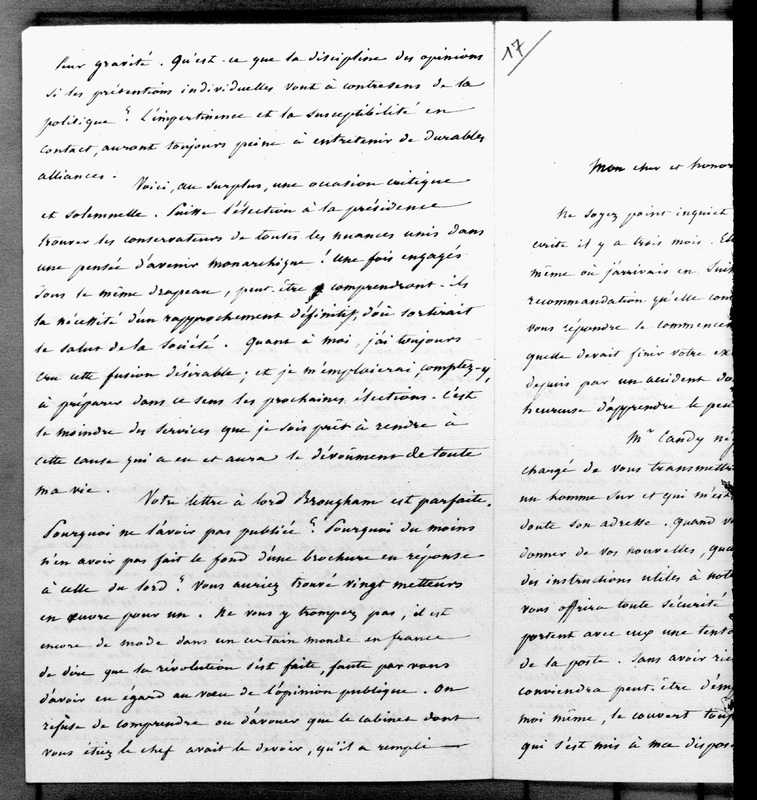 leur gravité. Qu'est-ce que la discipline des opinions
si les prétentions individuelles vont à contresens de la
politique? L'impertinence et la susceptibilité en
contact, auront toujours peine à entretenir de durables
alliances.
Voici, au surplus, une occasion critique
et solemnelle. Puisse l'élection à la présidence
trouver les conservateurs de toutes les nuances unis dans
une pensée d'avenir monarchique! Une fois engagés
sous le même drapeau, peut-être comprendront-ils
la nécessité d'un rapprochement définitif, d'où sortirait
le salut de la société. Quant à moi, j'ai toujours
cru cette fusion désirable; et je m'emploierai, comptez-y,
à préparer dans ce sens les prochaines élections. C'est
le moindre des services que je sois prêt à rendre à
cette cause qui a eu et aura le dévoûment de toute
ma vie.
Votre lettre à lord Brougham est parfaite.
Pourquoi ne l'avoir pas publiée? Pourquoi du moins
n'en avoir pas fait le fond d'une brochure en réponse
à celle du lord? Vous auriez trouvé vingt metteurs
en œuvre pour un. Ne vous y trompez pas, il est
encore de mode dans un certain monde en france
de dire que la révolution s'est faite, faute par vous
d'avoir eu égard au vœu de l'opinion publique. On
refuse de comprendre ou d'avouer que le cabinet dont
vous étiez le chef avait le devoir, qu'il a rempli
17
Mon cher et honor
Ne soyez point inquiet
écrite il y a trois mois. El
même où j'arrivais en Suis
recommandation qu'elle con
vous répondre le commencem
quelle devait finir votre ex
depuis par un accident do
heureuse d'apprendre le pe
Mr Candy
chargé de vous transmettre
un homme sûr et qui m'est
doute son adresse. Quand v
donner de vos nouvelles, qua
des instructions utiles à not
vous offrira toute sécurité
portent avec eux une tent
de la poste. Sans avoir rie
conviendra peut-être d'em
moi même, le couvert tou
qui s'est mis à ma dispos